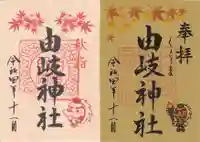 由岐神社
令和四年十一月
奉拝
由岐神社
令和四年十一月